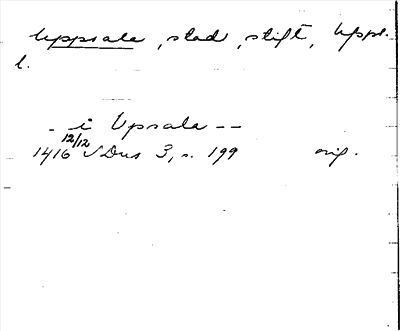 Uppsala, stad, stift, Uppl.
l.
- i Upsala --
1416 12/12 SDns 3, s. 199 orig.